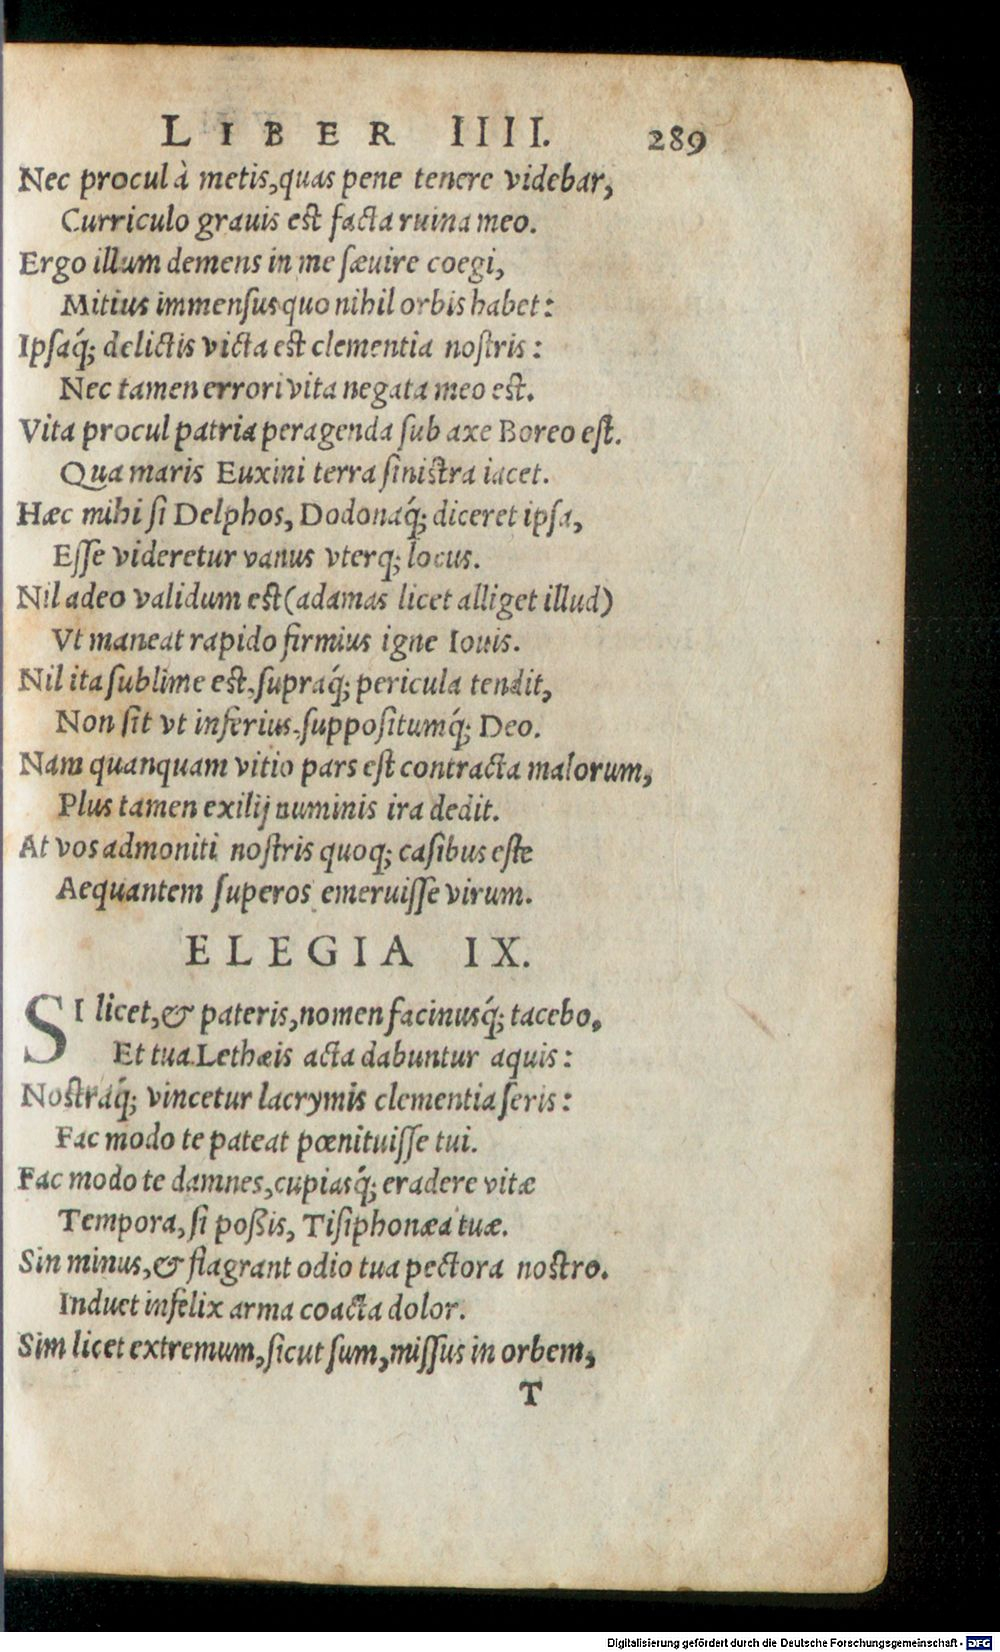 LIBER IIII. 289
Nec procul à metis, quas pene tenere videbar,
Curriculo grauis est facta ruina meo.
Ergo illum demens in me sæuire coegi,
Mitius immensus quo nihil orbis habet:
Ipsaq́; delictis victa est clementia nostris:
Nec tamen errori vita negata meo est.
Vita procul patria peragenda sub axe Boreo est.
Qua maris Euxini terra sinistra iacet.
Hæc mihi si Delphos, Dodonaq́; diceret ipsa,
Esse videretur vanus vterq; locus.
Nil adeo validum est (adamas licet alliget illud)
Vt maneat rapido firmius igne Iouis.
Nil ita sublime est, supraq́; pericula tendit,
Non sit vt inferius, suppositumq́; Deo.
Nam quanquam vitio pars est contracta malorum,
Plus tamen exilij numinis ira dedit.
At vos admoniti nostris quoq; casibus este
Aequantem superos emeruisse virum.
ELEGIA IX.
SI licet, & pateris, nomen facinusq́; tacebo,
Et tua Lethæis acta dabuntur aquis:
Nostraq́; vincetur lacrymis clementia seris:
Fac modo te pateat pœnituisse tui.
Fac modo te damnes, cupiasq́; eradere vitæ
Tempora, si poßis, Tisiphonæa tuæ.
Sin minus, & flagrant odio tua pectora nostro.
Induet infelix arma coacta dolor.
Sim licet extremum, sicut sum, missus in orbem,
T
Digitalisierung gefördert durch die Deutsche Forschungsgemeinschaft - DFG